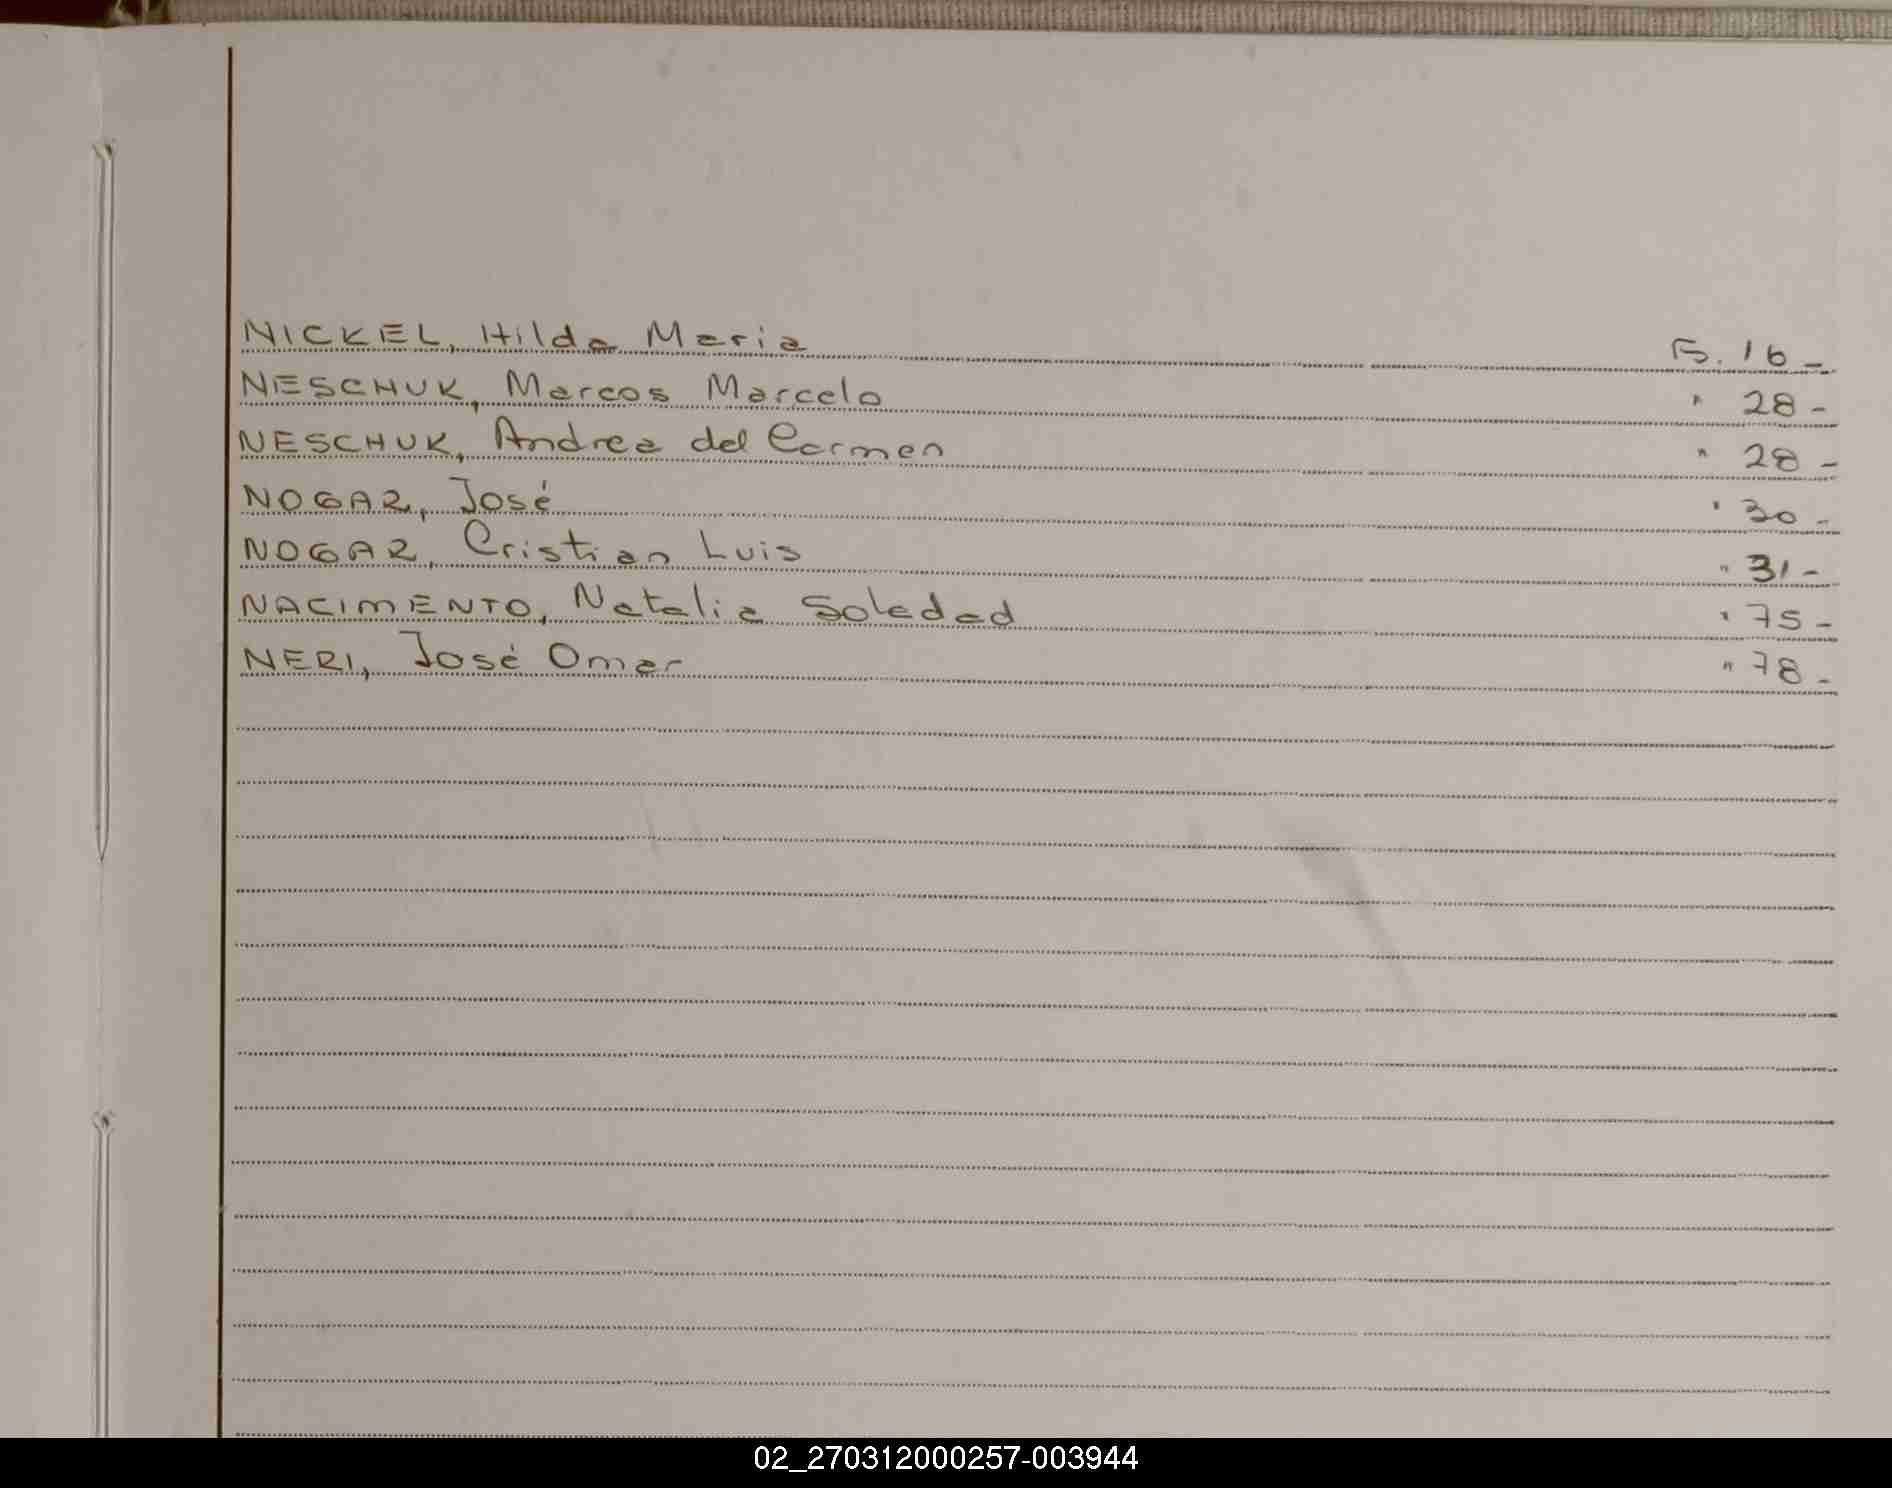 NICKEL, Hilda Maria F. 16 -
NESCHUK, Marcos Marcelo " 28 -
NESCHUK, Andrea del Carmen " 28 -
NOGAR, José " 30 -
NOGAR, Cristian Luis " 31 -
NACIMENTO, Natalia Soledad " 75 -
NERI, José Omar " 78 -
02_270312000257-003944